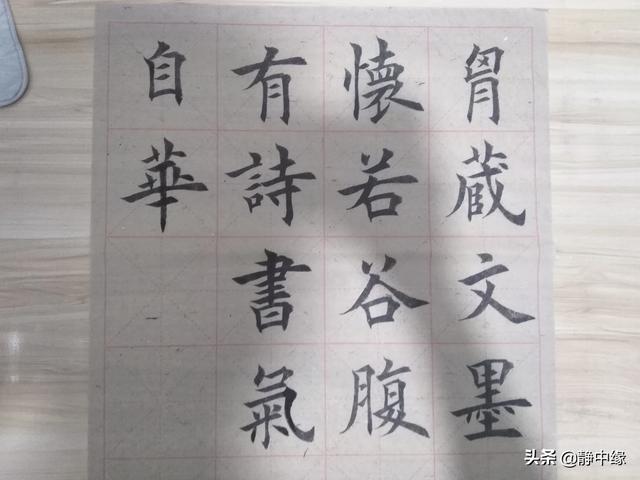 胷蔵文墨
懷若谷腹
有詩書氣
自華
头条 @静中缘